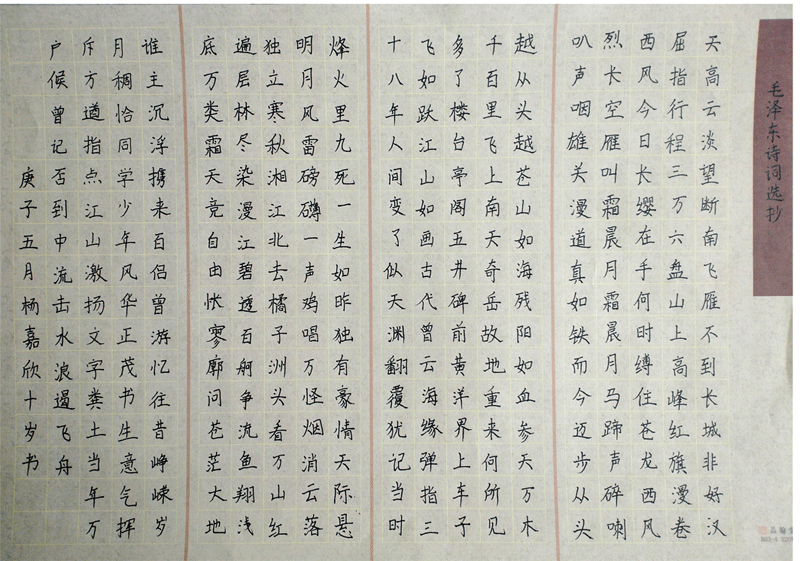 毛泽东诗词选抄
天高云淡望断南飞雁不到长城非好汉
屈指行程三万六盘山上高峰红旗漫卷
西风今日长缨在手何时缚住苍龙西风
烈长空雁叫霜晨月霜晨月马蹄声碎喇
叭声咽雄关漫道真如铁而今迈步从头
越从头越苍山如海残阳如血参天万木
千百里飞上南天奇岳故地重来何所见
多了楼台亭阁五井碑前黄洋界上车子
飞如跃江山如画古代曾云海缘弹指三
十八年人间变了似天渊翻覆犹记当时
烽火里九死一生如昨独有豪情天际悬
明月风雷磅礴一声鸡唱万怪烟消云落
独立寒秋湘江北去橘子洲头看万山红
遍层林尽染漫江碧透百舸争流鱼翔浅
底万类霜天竞自由怅寥廓问苍茫大地
谁主沉浮携来百侣曾游忆往昔峥嵘岁
月稠恰同学少年风华正茂书生意气挥
斥方遒指点江山激扬文字粪土当年万
户侯曾记否到中流击水浪遏飞舟
庚子五月杨嘉欣十岁书